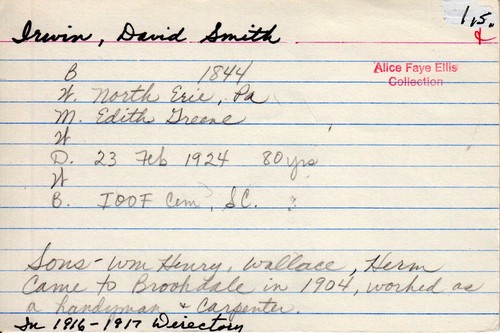 1,5.
&
Irwin, David Smith
Alice Faye Ellis
Collection
B 1844
W. North Erie, Pa
M. Edith Greene
W
D. 23 Feb 1924 80 yrs
W
B. IOOF Cem, SC.
Sons - Wm Henry, Wallace, Herm
Came to Brookdale in 1904, worked as
a handyman & Carpenter.
In 1916-1917 Directory